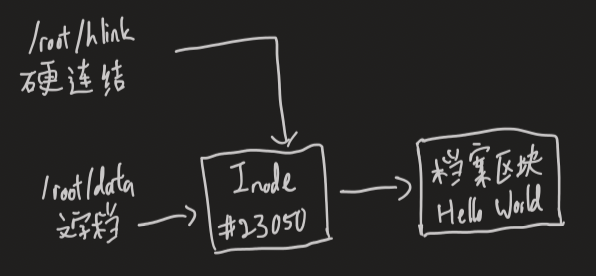 /root/hlink
硬连结
/root/data
文字档
Inode
#23050
档案区块
Hello World